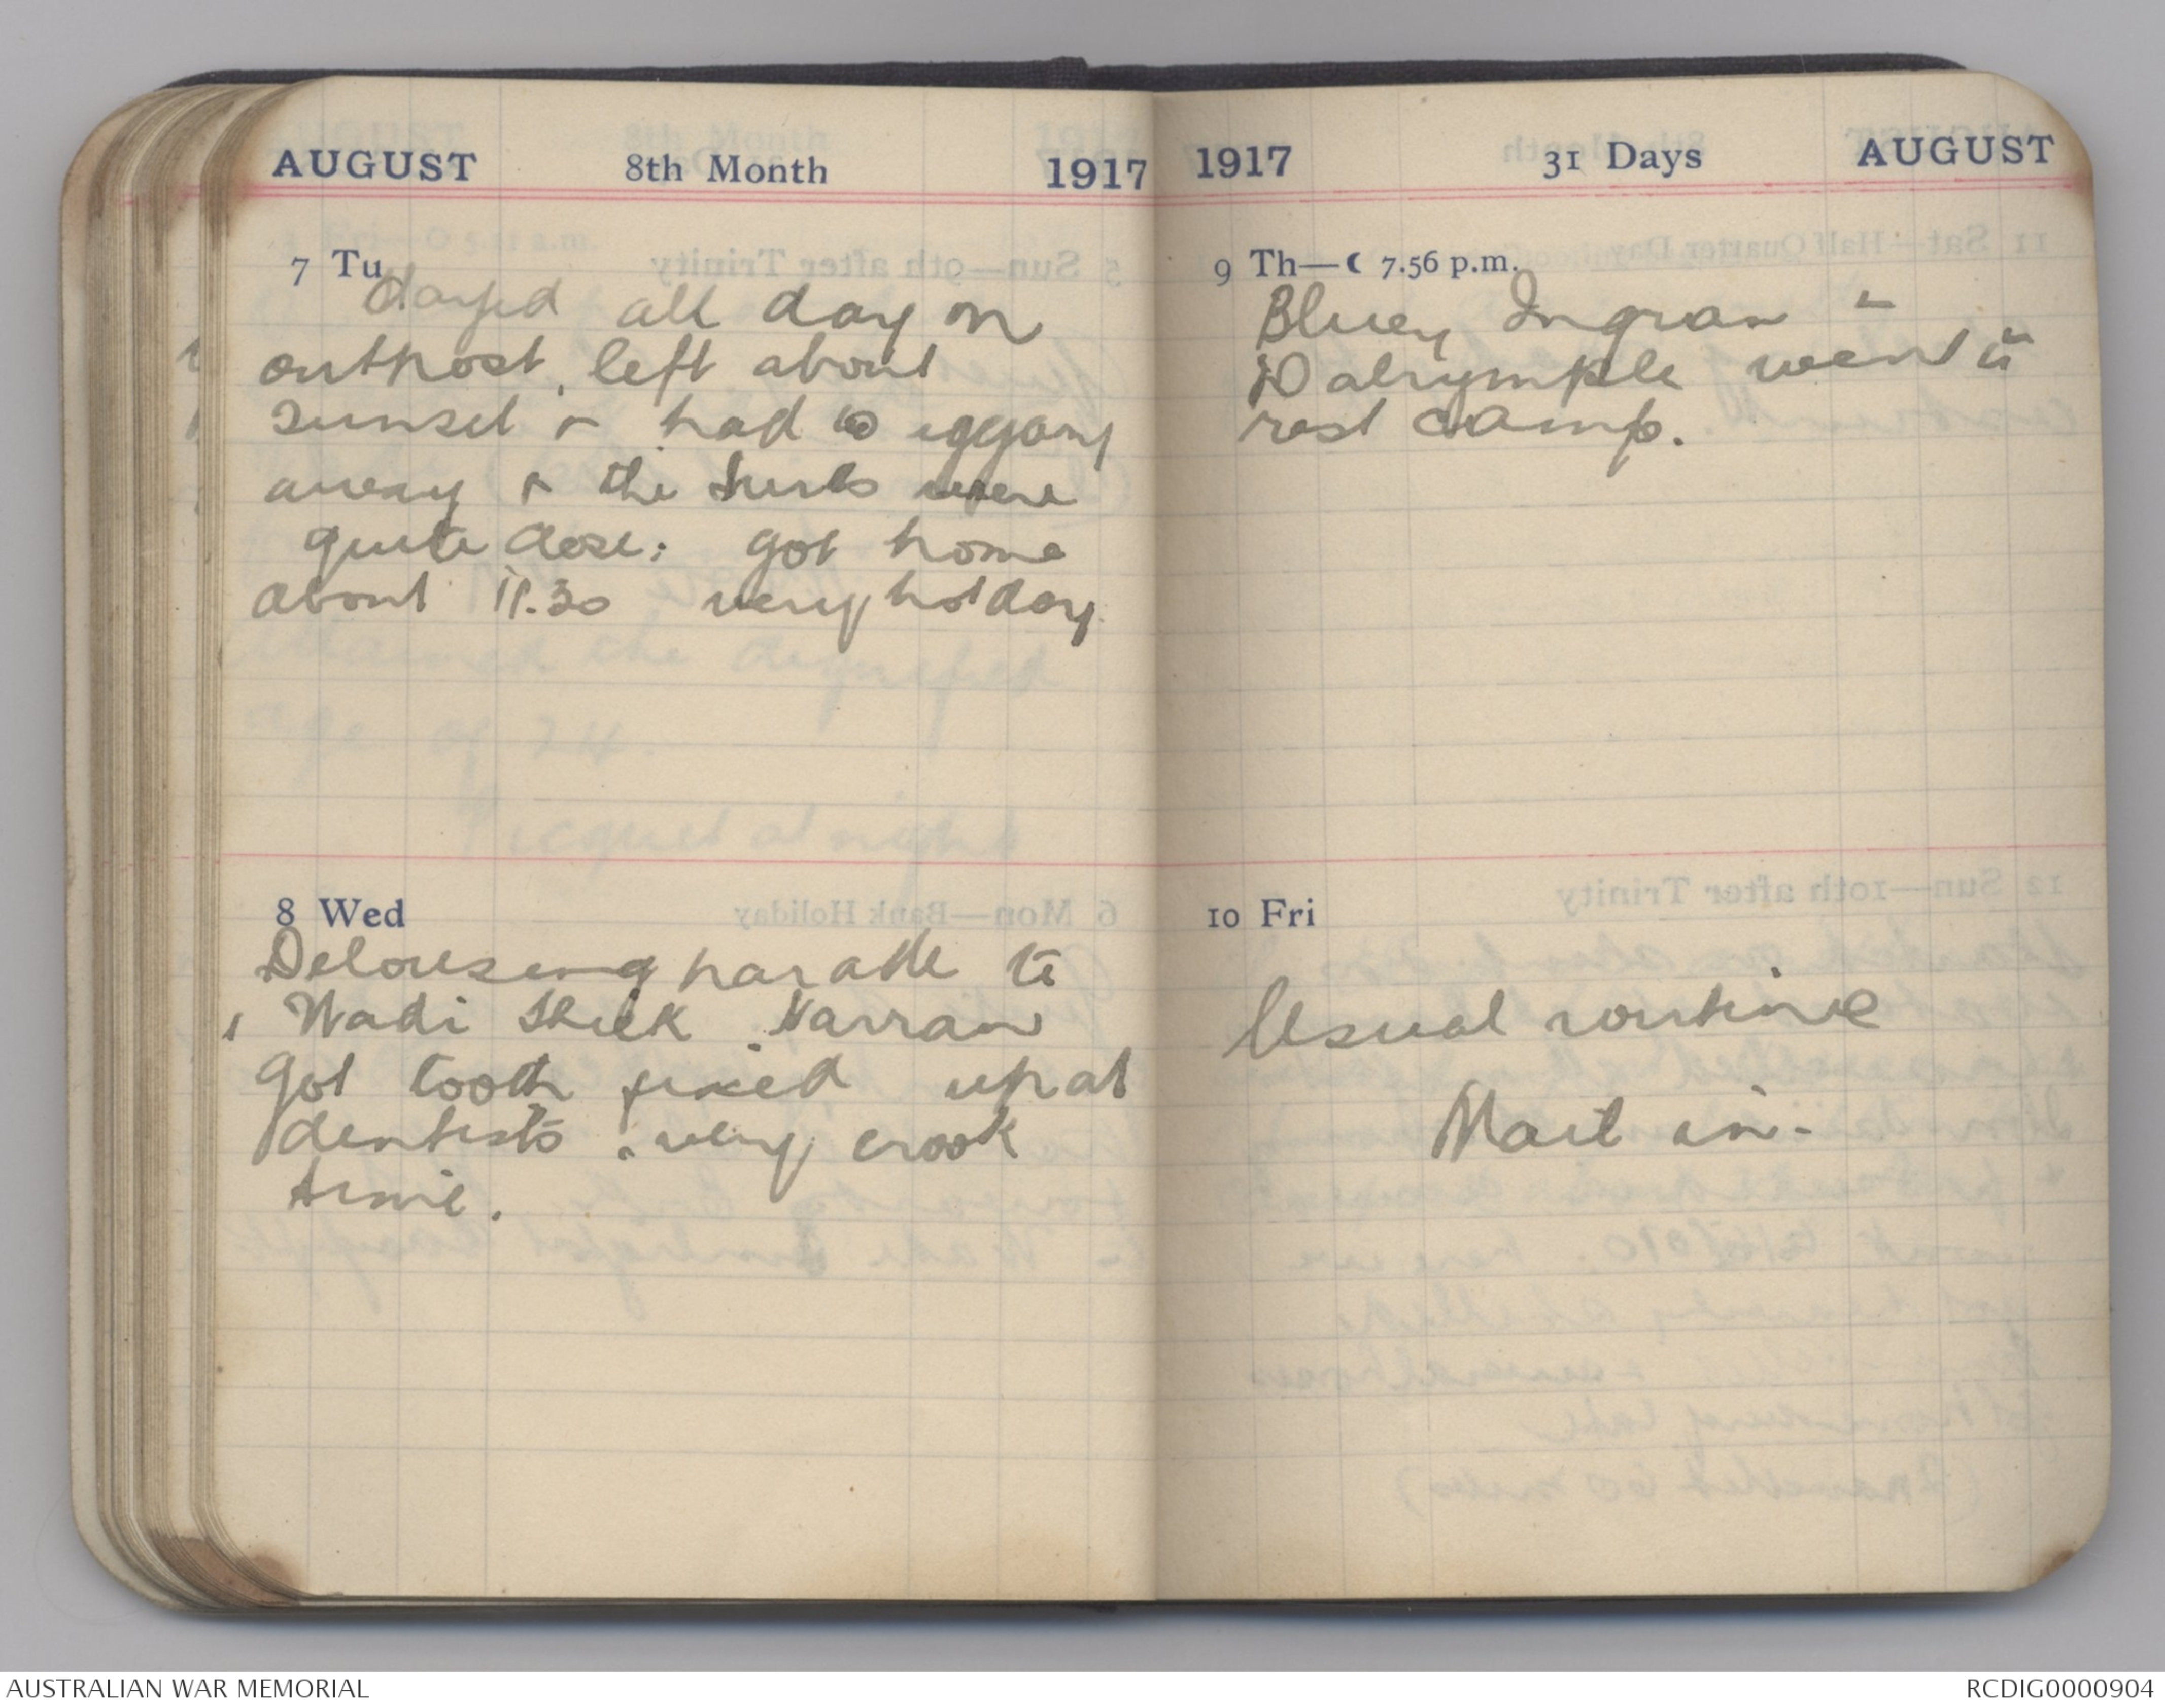 AUGUST 8th Month 1917
7 Tu
all day on
outpost, left about
sunset & had to
away & the Turks were
quite close; got home
about 11.30 very hot day
8 Wed
Delousing parade to
Wadi Shiek Narran
got tooth fixed up at
dentists. very crook
time.
1917 31 Days AUGUST
9 Th—☾ 7.56 p.m.
Bluey Ingram &
Dalrymple went to
rest camp.
10 Fri
Usual routine
Mail in.
AUSTRALIAN WAR MEMORIAL
RCDIG0000904